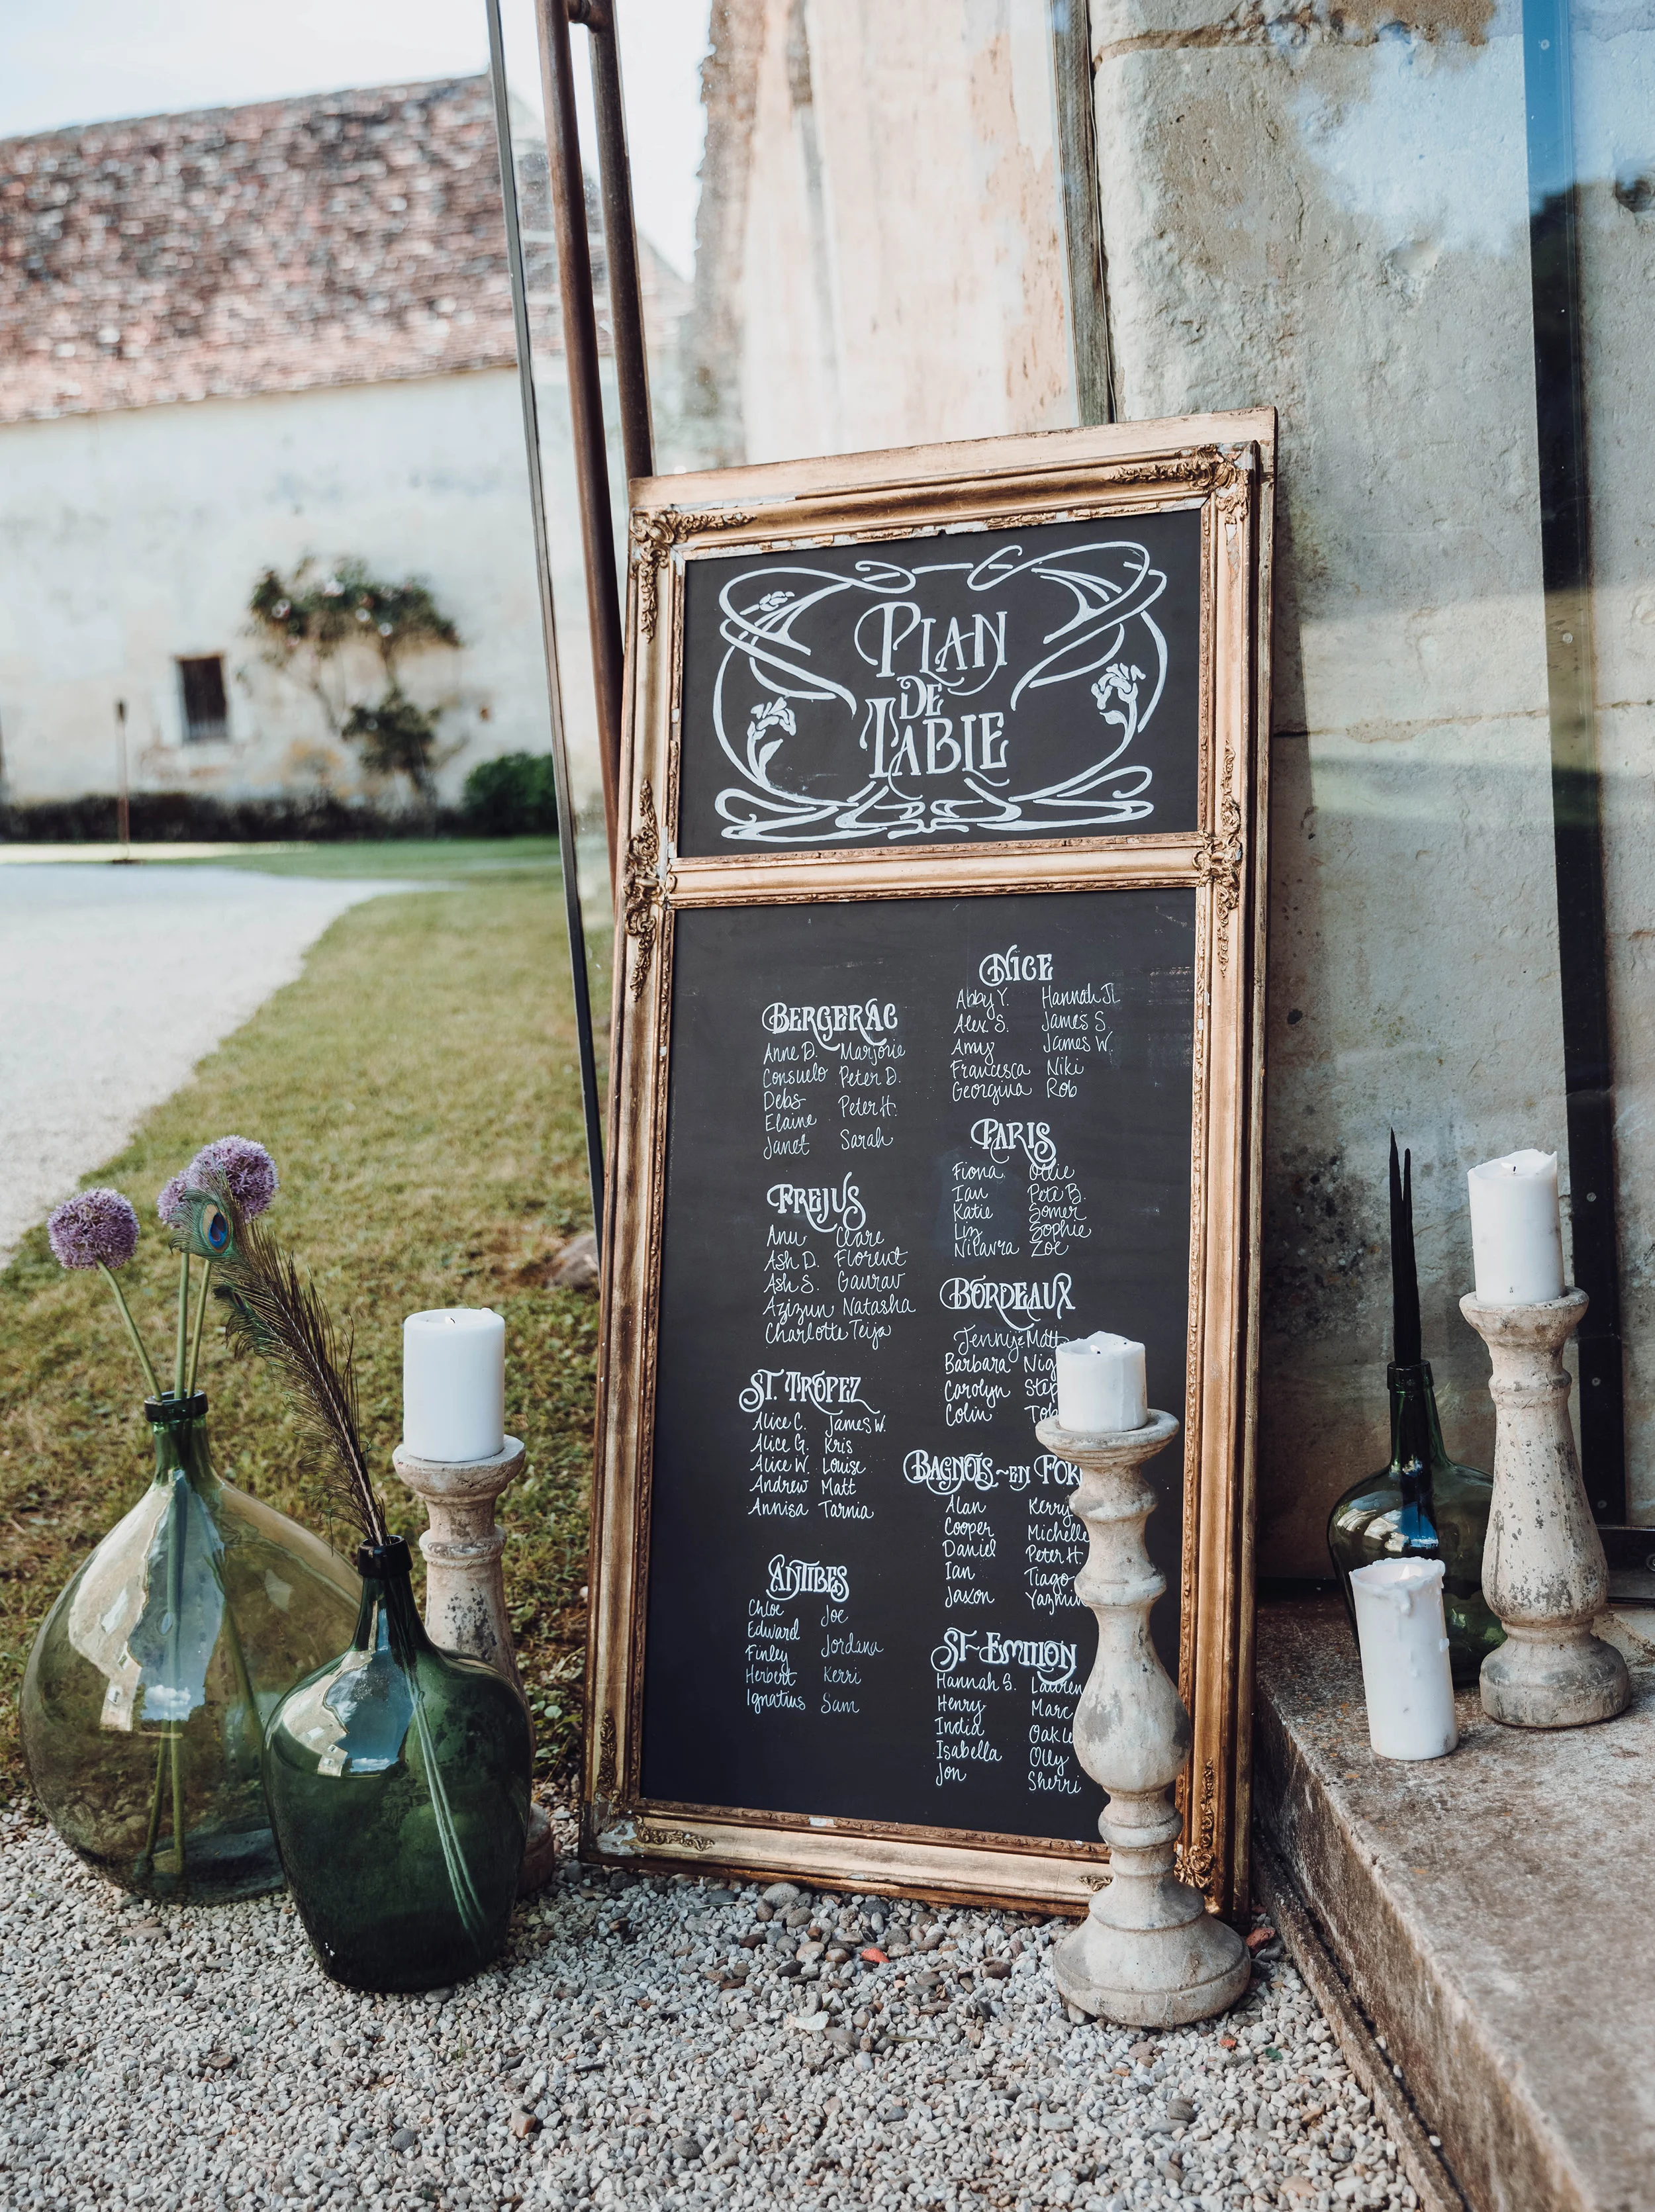 PLAN
DE
TABLE
BERGERAC
Anne D. Marjorie
Consuelo Peter D.
Debs Peter H.
Elaine
Janet Sarah
FREJUS
Anu Clare
Ash D. Florent
Ash S. Gaurav
Azizun Natasha
Charlotte Teija
ST. TROPEZ
Alice C. James W.
Alice G. Kris
Alice W. Louise
Andrew Matt
Annisa Tarnia
ANTIBES
Chloe Joe
Edward Jordana
Finley
Herbert Kerri
Ignatius Sam
NICE
Abby Y. Hannah JL
Alex S. James S.
Amy James W.
Francesca Niki
Georgina Rob
PARIS
Fiona Ollie
Ian Pete B.
Katie Somer
Liz Sophie
Nilavra Zoe
BORDEAUX
Jenny & Matt
Barbara Nig
Carolyn Step
Colin Tob
BAGNOLS~EN FOR
Alan Kerry
Cooper Michelle
Daniel Peter H.
Ian Tiago
Jaxon Yazmi
ST~EMILION
Hannah S. Lauren
Henry Marc
India Oakle
Isabella Olly
Jon Sherri